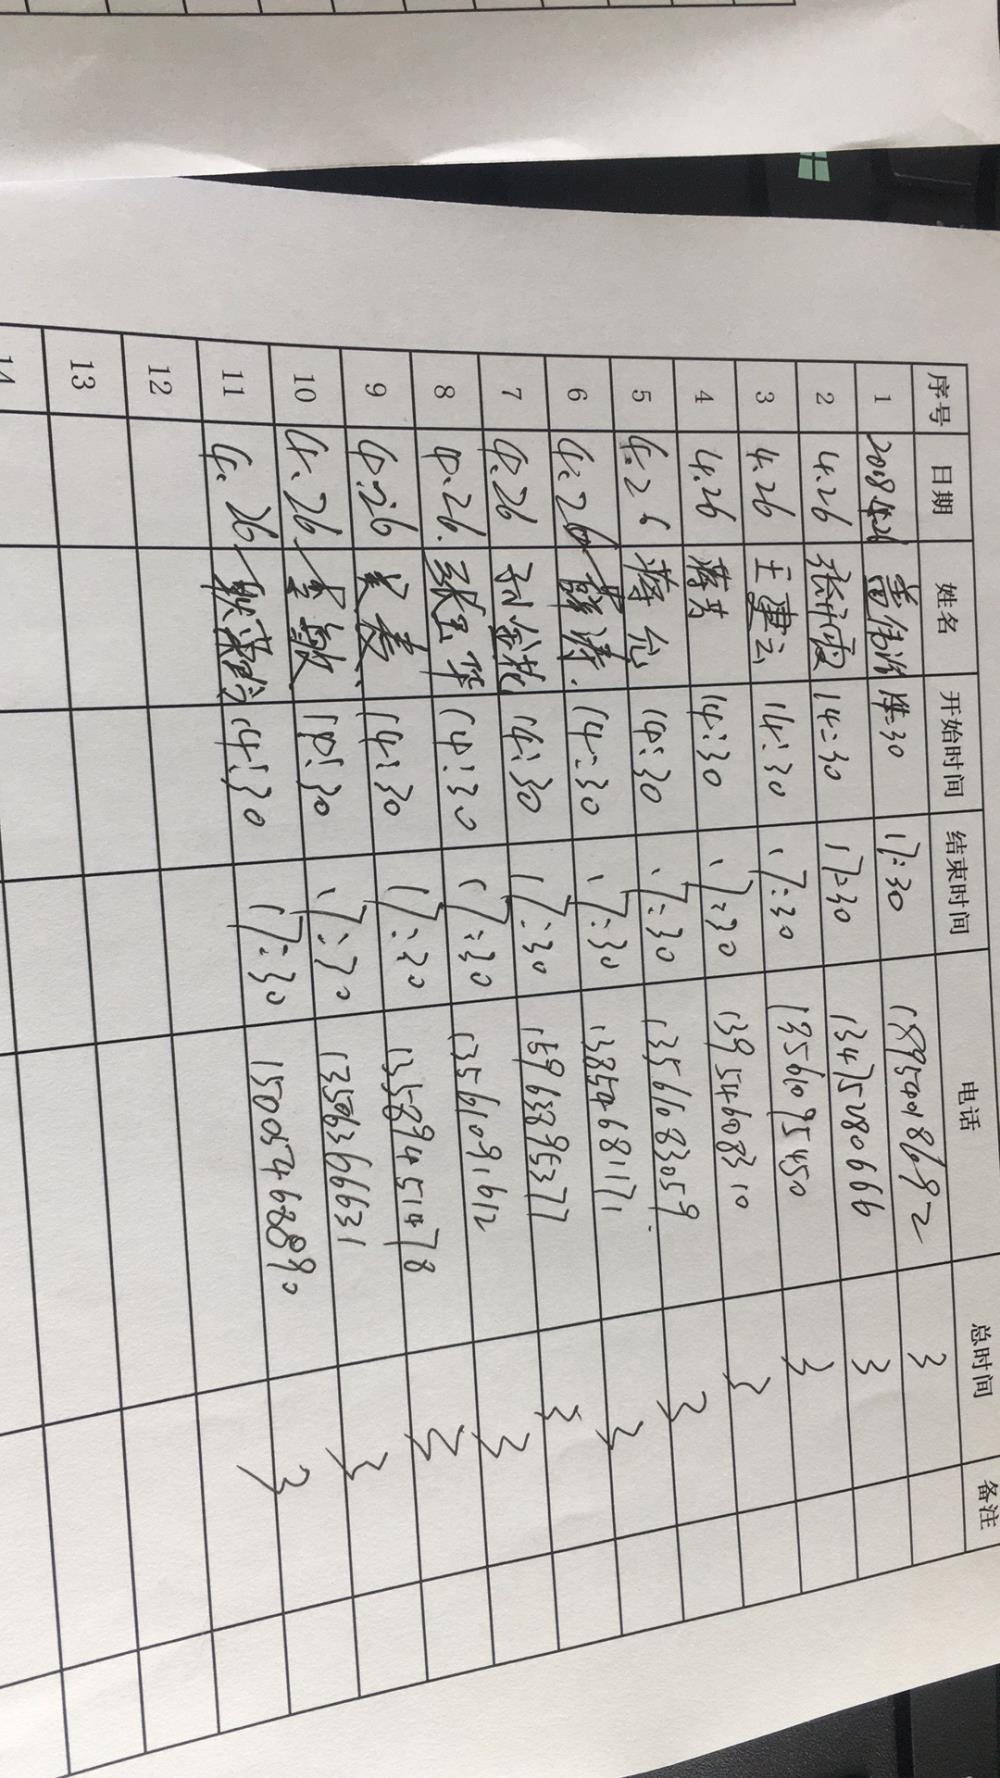 序号 日期 姓名 开始时间 结束时间 电话 总时间 备注
1 2018.4.26 14:30 17:30 3
2 4.26 张丽霞 14:30 17:30 13475280666 3
3 4.26 王建云 14:30 17:30 3
4 4.26 蒋芳 14:30 17:30 13954608310 3
5 4.26 蒋允 14:30 17:30 13561083059 3
6 4.26 薛涛 14:30 17:30 13854681171 3
7 4.26 孙金花 14:30 17:30 15963895377 3
8 4.26 张玉华 14:30 17:30 13561091612 3
9 4.26 14:30 17:30 13589451478 3
10 4.26 李敏 14:30 17:30 13563666631 3
11 4.26 14:30 17:30 15005468890 3
12
13
14